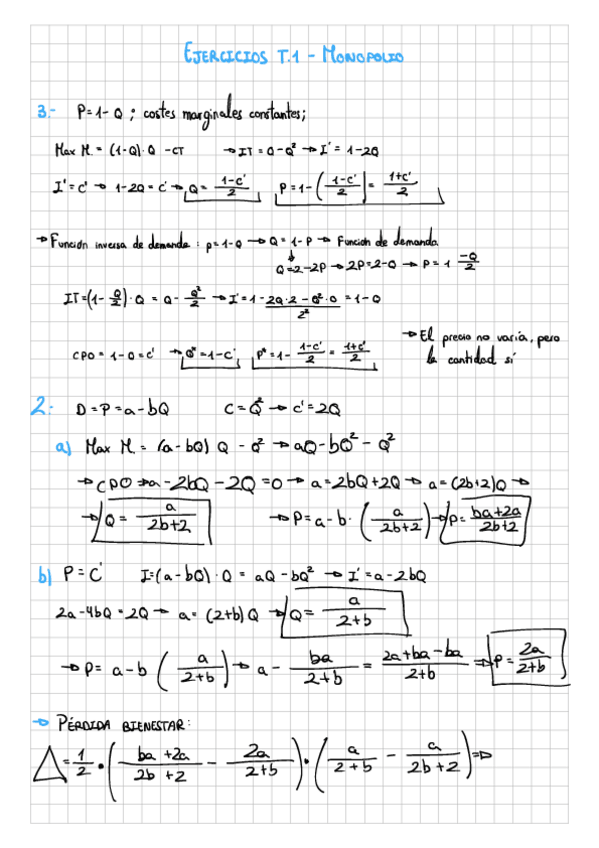 EJERCICIOS T.1 - MONOPOLIO
3.- P=1-Q ; costes marginales constantes;
Max M. = (1-Q)·Q -CT → IT = Q-Q² → I' = 1-2Q
I' = c' → 1-2Q = c' → Q = (1-c')/2 P = 1-((1-c')/2) = (1+c')/2
→ Función inversa de demanda: p=1-Q → Q = 1-P → Función de demanda
↓
Q=2-2P → 2P=2-Q → P = 1 -Q/2
IT=(1-Q/2)·Q = Q-Q²/2 → I' = 1-(2Q·2-Q²·0)/2² = 1-Q
→ El precio no varía, pero
CPO = 1-Q=c' → Q*=1-c' P* = 1-(1-c')/2 = (1+c')/2 la cantidad sí
2.- D=P=a-bQ C=Q² → c'=2Q
a) Max M. = (a-bQ) Q - Q² → aQ-bQ²-Q²
→ CPO → a-2bQ-2Q=0 → a=2bQ+2Q → a=(2b+2)Q →
→ Q = a/(2b+2) → P=a-b·(a/(2b+2)) → P=(ba+2a)/(2b+2)
b) P=C' I=(a-bQ)·Q = aQ-bQ² → I'=a-2bQ
2a-4bQ=2Q → a=(2+b)Q → Q=a/(2+b)
→ P= a-b (a/(2+b)) → a - ba/(2+b) = (2a+ba-ba)/(2+b) ⇒ P=2a/(2+b)
→ PÉRDIDA BIENESTAR:
△=1/2·((ba+2a)/(2b+2) - 2a/(2+b))·(a/(2+b) - a/(2b+2)) ⇒